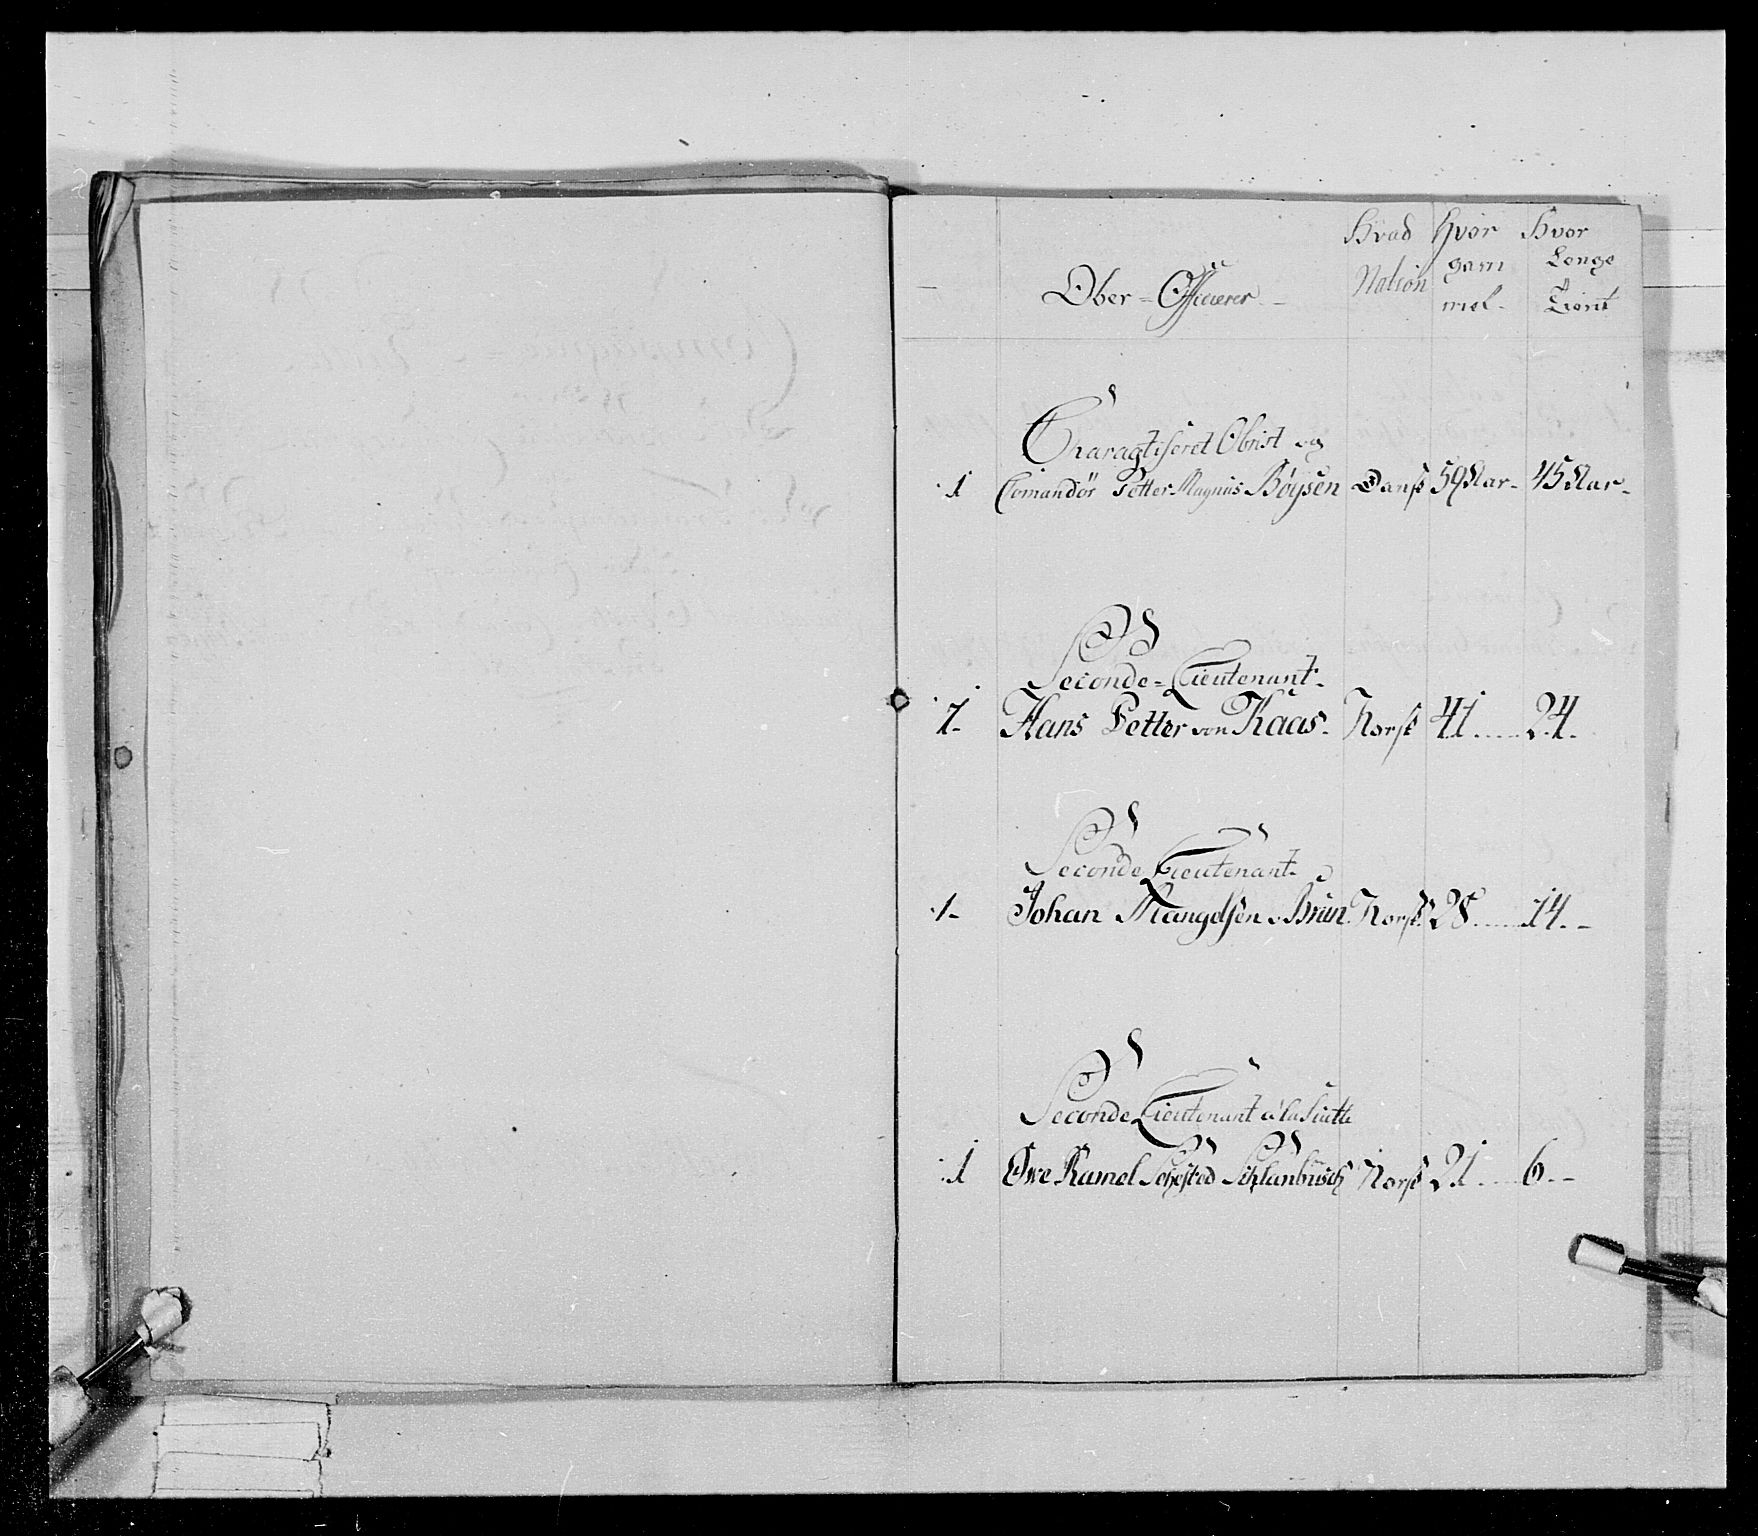 Ober-Officierer Hvad Nation Hvor gam mel Hvor Lenge Tient
Charagtiseret Obrist og
1 Comandör Petter Magnus Böysen Dansk 59 Aar 45 Aar
Seconde-Lieutenant
1 Hans Petter von Kaas Norsk 41 24
Seconde Lieutenant
1 Johan Mangelsen v. Brun Norsk 28 14
Seconde Lieutenant a la Suitte
1 Owe Ramel Sehested Schlanbusch Norsk 21 6